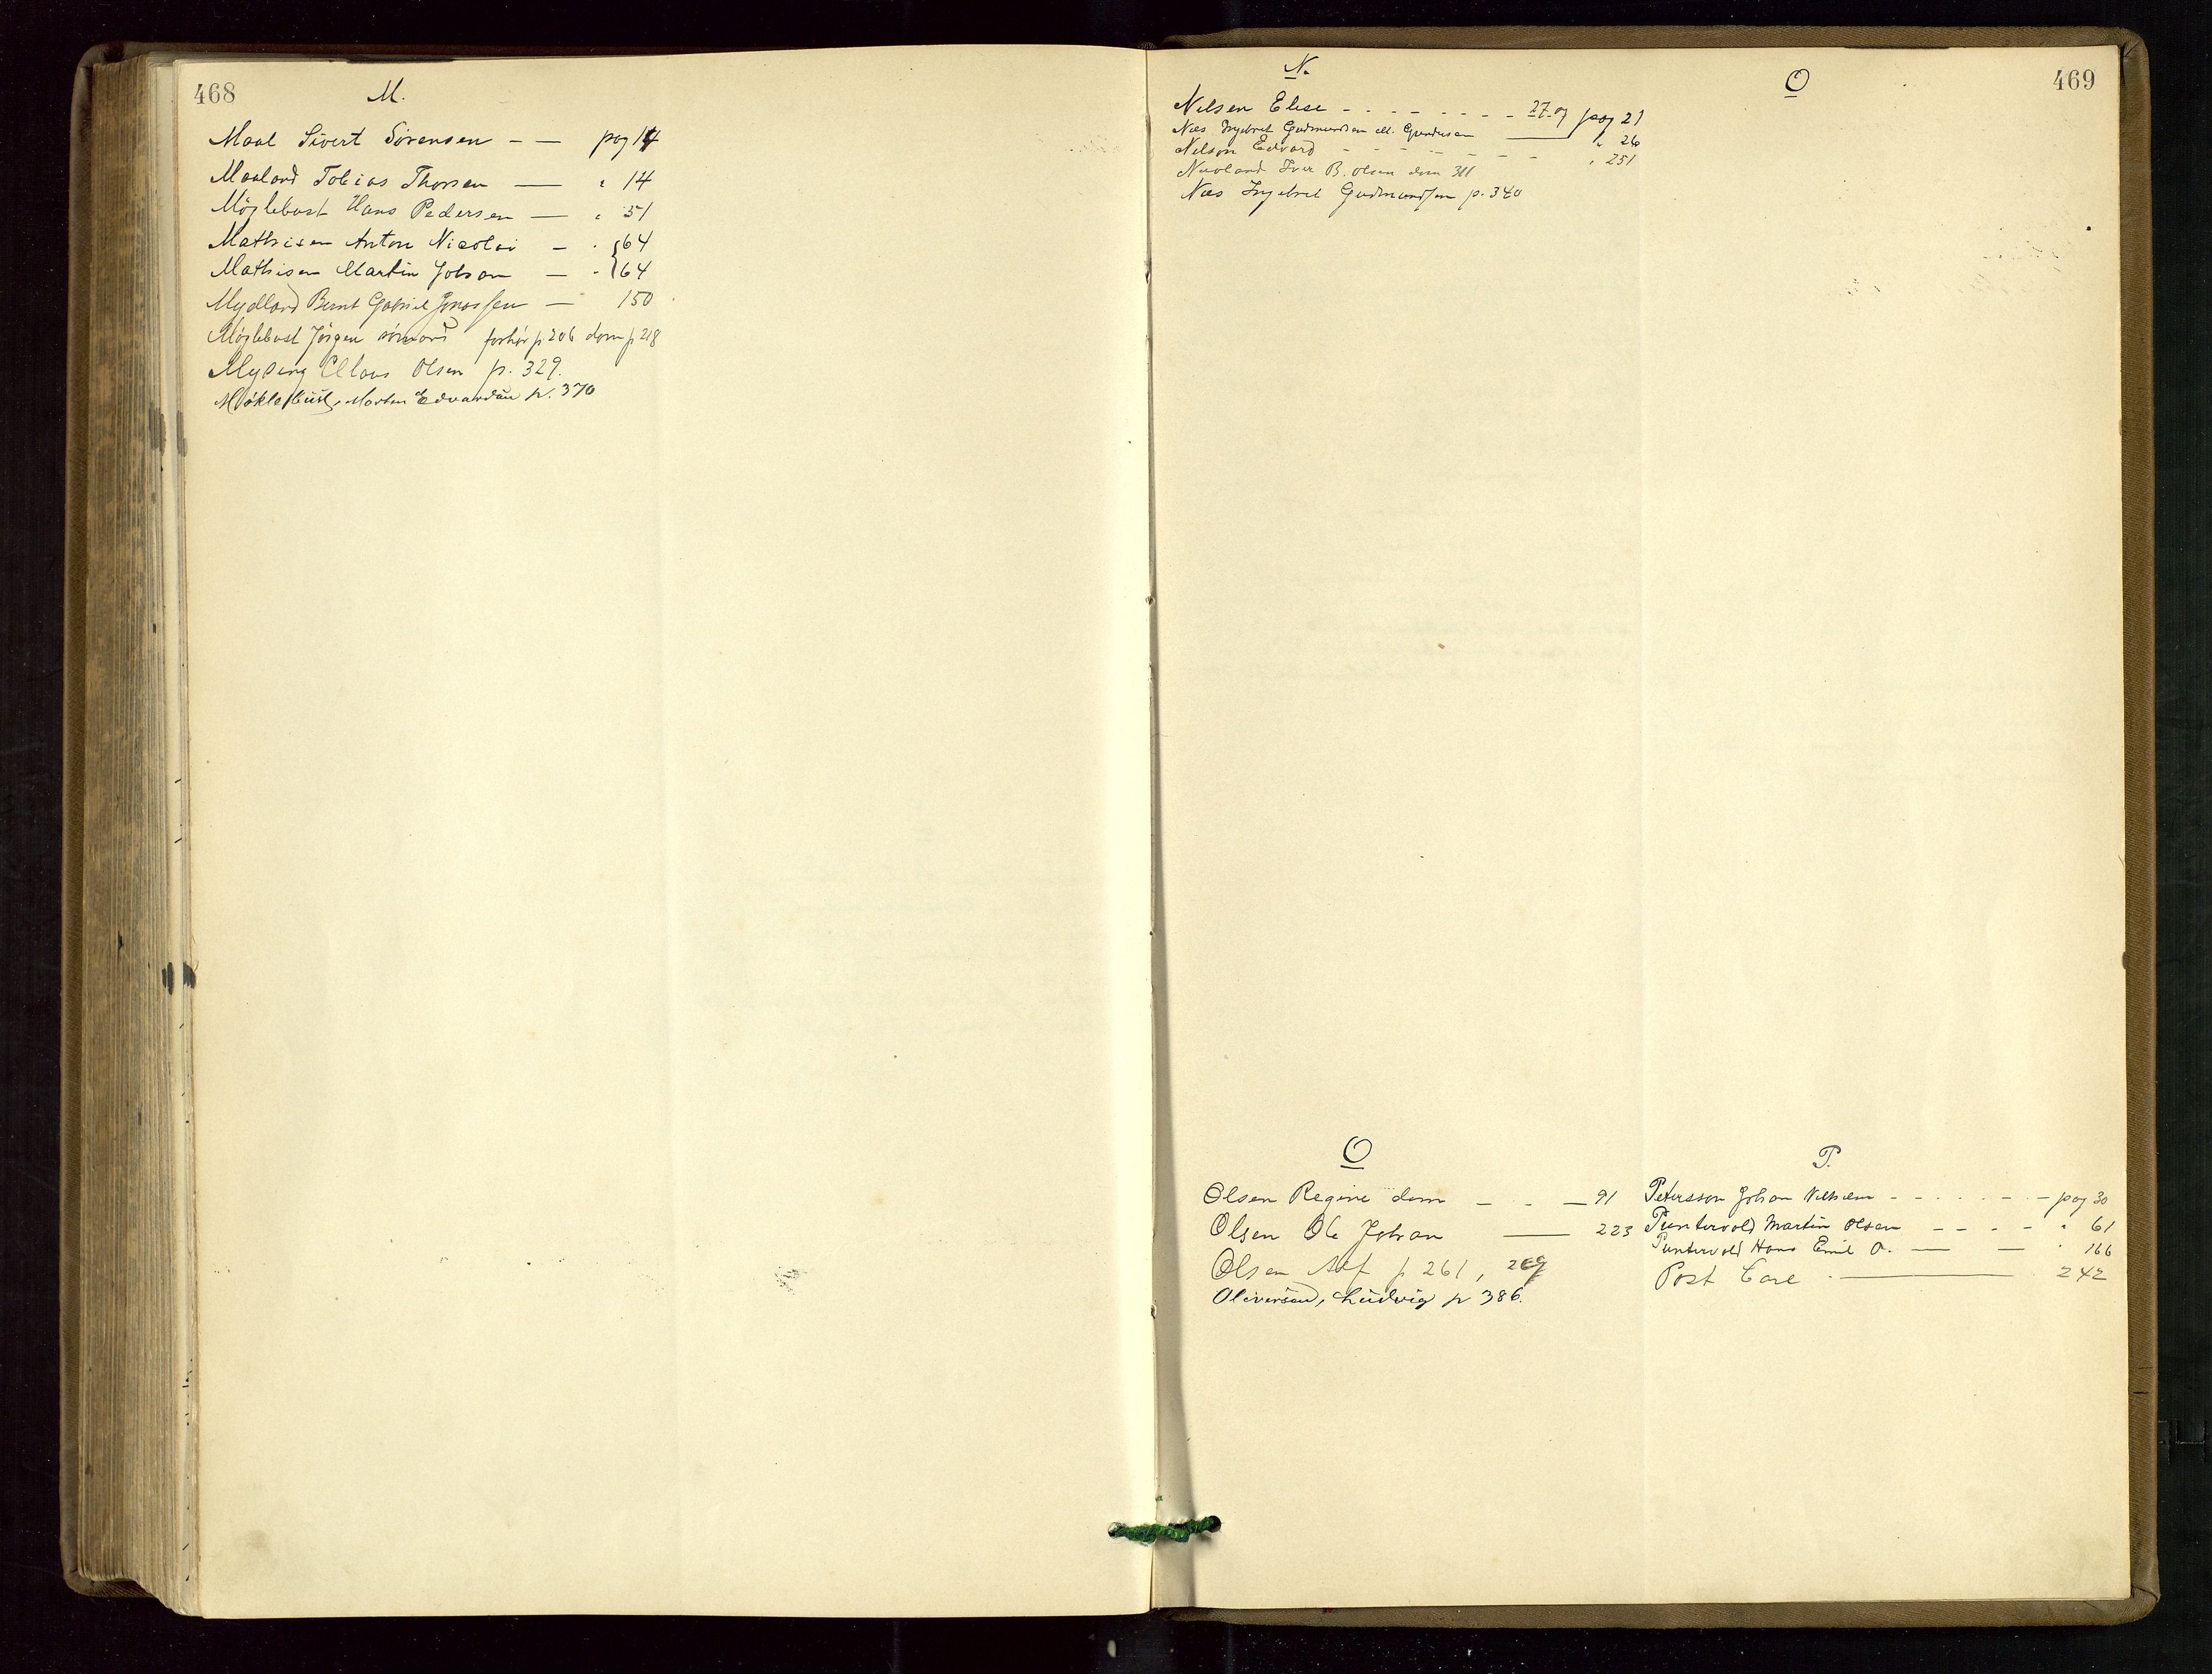 468
M.
Maal Sivert Sørensen — — pag 14
Maaland Tobias Thorsen — " 14
Møglebust Hans Pedersen — " 51
Mathisen Anton Nicolai — " 64
Mathisen Martin Johan — " 64
Mydland Bernt Gabriel Jonassen — 150
Møglebust Jørgen forhør p 206 dom p 218
Mysing Claus Olsen p. 329.
Møklebust, Morten Edvardsen p. 370
469
N.
Nilsen Elise - - - - - - - - 27 og pag 21
Næs Ingebret Gudmundsen — " 26
Nilson Edvard - - - - - - " 251
Iver B. Olsen dom 311
Næs Ingebret Gudmundsen p. 340
O
O
Olsen Regine dom — - — 91
Olsen Ole Johan — 223
Olsen Alf p 261, 269
Oliversen, Ludvig p 386.
P.
Petersson Johan Vilhelm - - - - - - pag 30
Puntervold Martin Olsen - - - - " 61
Puntervold Hans Emil O. — — " 166
Post Carl — 242